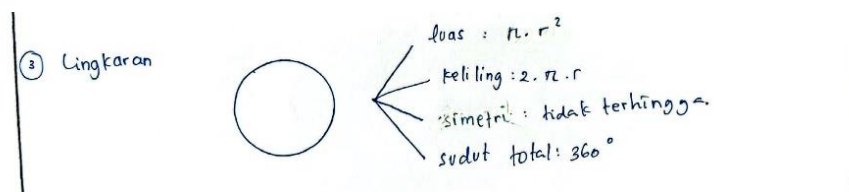 ③ Lingkaran
luas : π. r²
keliling : 2. π . r
simetri : tidak terhingga.
sudut total : 360°